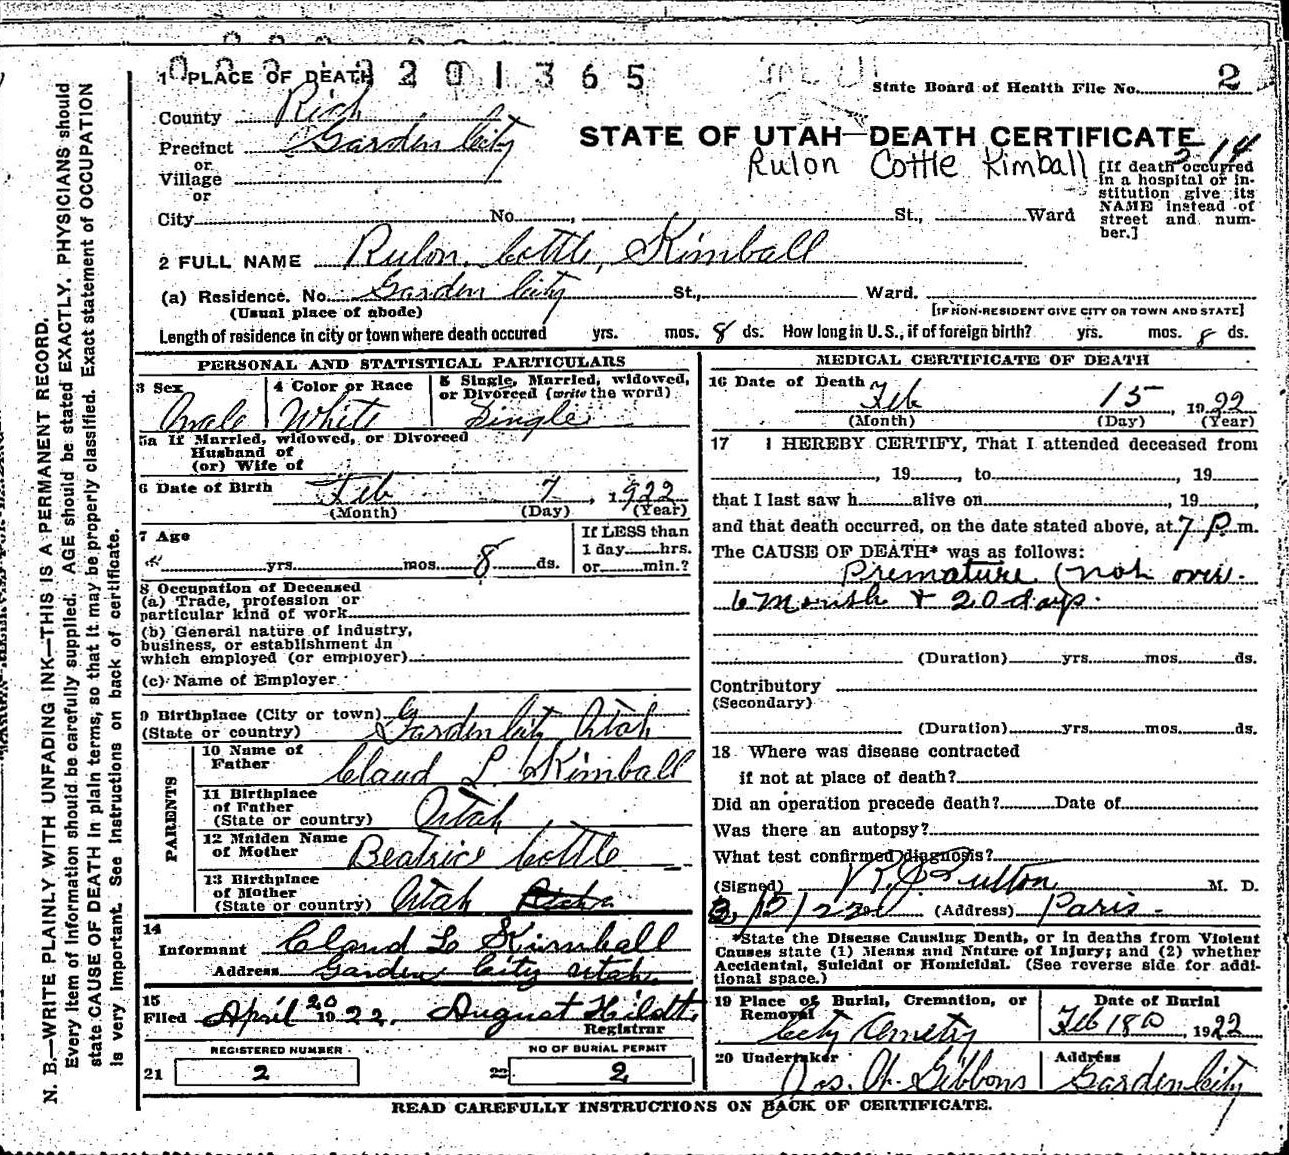 0 2201365
1 PLACE OF DEATH
State Board of Health File No. 2
County Rich
STATE OF UTAH—DEATH CERTIFICATE
Precinct Garden City
or
Village
or
Rulon Cottle Kimball
14
[If death occurred in a hospital or in-
stitution give its
NAME instead of
street and num-
ber.]
City No. , St., Ward
2 FULL NAME Rulon Cottle, Kimball
(a) Residence. No. Garden City St., Ward.
(Usual place of abode)
[IF NON-RESIDENT GIVE CITY OR TOWN AND STATE]
Length of residence in city or town where death occured yrs. mos. 8 ds. How long in U.S., if of foreign birth? yrs. mos. 8 ds.
PERSONAL AND STATISTICAL PARTICULARS
3 Sex
Male
4 Color or Race
White
5 Single, Married, widowed,
or Divorced (write the word)
Single
5a If Married, widowed, or Divorced
Husband of
(or) Wife of
6 Date of Birth Feb 7, 1922
(Month) (Day) (Year)
7 Age
yrs. mos. 8 ds.
If LESS than
1 day hrs.
or min.?
8 Occupation of Deceased
(a) Trade, profession or
particular kind of work
(b) General nature of industry,
business, or establishment in
which employed (or employer)
(c) Name of Employer
9 Birthplace (City or town)
(State or country) Garden City Utah
PARENTS
10 Name of
Father Claud L Kimball
11 Birthplace
of Father
(State or country) Utah
12 Maiden Name
of Mother Beatrice Cottle
13 Birthplace
of Mother
(State or country) Utah
14
Informant Claud L Kimball
Address Garden City Utah
15
Filed April 20 1922. August Hildt
Registrar
REGISTERED NUMBER
21 2
NO OF BURIAL PERMIT
22 2
MEDICAL CERTIFICATE OF DEATH
16 Date of Death Feb 15, 1922
(Month) (Day) (Year)
17 I HEREBY CERTIFY, That I attended deceased from
, 19 , to , 19
that I last saw h alive on , 19
and that death occurred, on the date stated above, at 7 P.m.
The CAUSE OF DEATH* was as follows:
Premature (not over
6 Month & 20 days.
(Duration) yrs. mos. ds.
Contributory
(Secondary)
(Duration) yrs. mos. ds.
18 Where was disease contracted
if not at place of death?
Did an operation precede death? Date of
Was there an autopsy?
What test confirmed diagnosis?
(Signed) Sutton M. D.
(Address) Paris
*State the Disease Causing Death, or in deaths from Violent
Causes state (1) Means and Nature of Injury; and (2) whether
Accidental, Suicidal or Homicidal. (See reverse side for addi-
tional space.)
19 Place of Burial, Cremation, or
Removal
City Cemetry
Date of Burial
Feb 18 1922
20 Undertaker
Jas. H. Gibbons
Address
Garden City
READ CAREFULLY INSTRUCTIONS ON BACK OF CERTIFICATE.
N. B.—WRITE PLAINLY WITH UNFADING INK—THIS IS A PERMANENT RECORD.
Every item of information should be carefully supplied. AGE should be stated EXACTLY. PHYSICIANS should
state CAUSE OF DEATH in plain terms, so that it may be properly classified. Exact statement of OCCUPATION
is very important. See instructions on back of certificate.